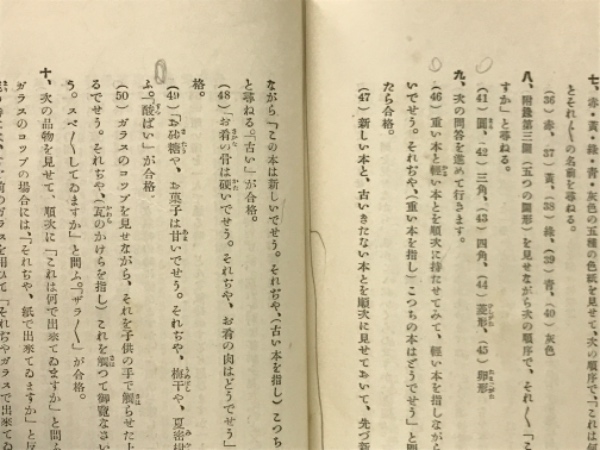 七、赤・黃・綠・青・灰色の五種の色紙を見せて、次の順序で、「これは何
とそれ〴〵の名前を尋ねる。
(36) 赤、(37) 黃、(38) 綠、(39) 青、(40) 灰色
八、附錄第二圖（五つの圖形）を見せながら次の順序で、それ〴〵「こ
すか」と尋ねる。
(41) 圓、(42) 三角、(43) 四角、(44) 菱形、(45) 卵形
九、次の問答を進めて行きます。
(46) 重い本と輕い本とを順次に持たせてみて、輕い本を指しながら
いでせう。それぢや、（重い本を指し）こつちの本はどうでせう」と問
たら合格。
(47) 新しい本と、古いきたない本とを順次に見せておいて、先づ新
ながら「この本は新しいでせう。それぢや、（古い本を指し）こつち
と尋ねる。「古い」が合格。
(48) 「お肴の骨は硬いでせう。それぢや、お肴の肉はどうでせう」
格。
(49) 「お砂糖や、お菓子は甘いでせう。それぢや、梅干や、夏蜜柑
ふ。「酸ぱい」が合格。
(50) ガラスのコップを見せながら、それを子供の手で觸らせた上
るでせう。それぢや、（瓦のかけらを指し）これを觸つて御覽なさい
う。スベ〳〵してゐますか」と問ふ。「ザラ〳〵」が合格。
十、次の品物を見せて、順次に「これは何で出來てゐますか」と問ふ
ガラスのコップの場合には、「それぢや、紙で出來てゐますか」と反
前のガラスを用ひて「それぢやガラスで出來てゐ